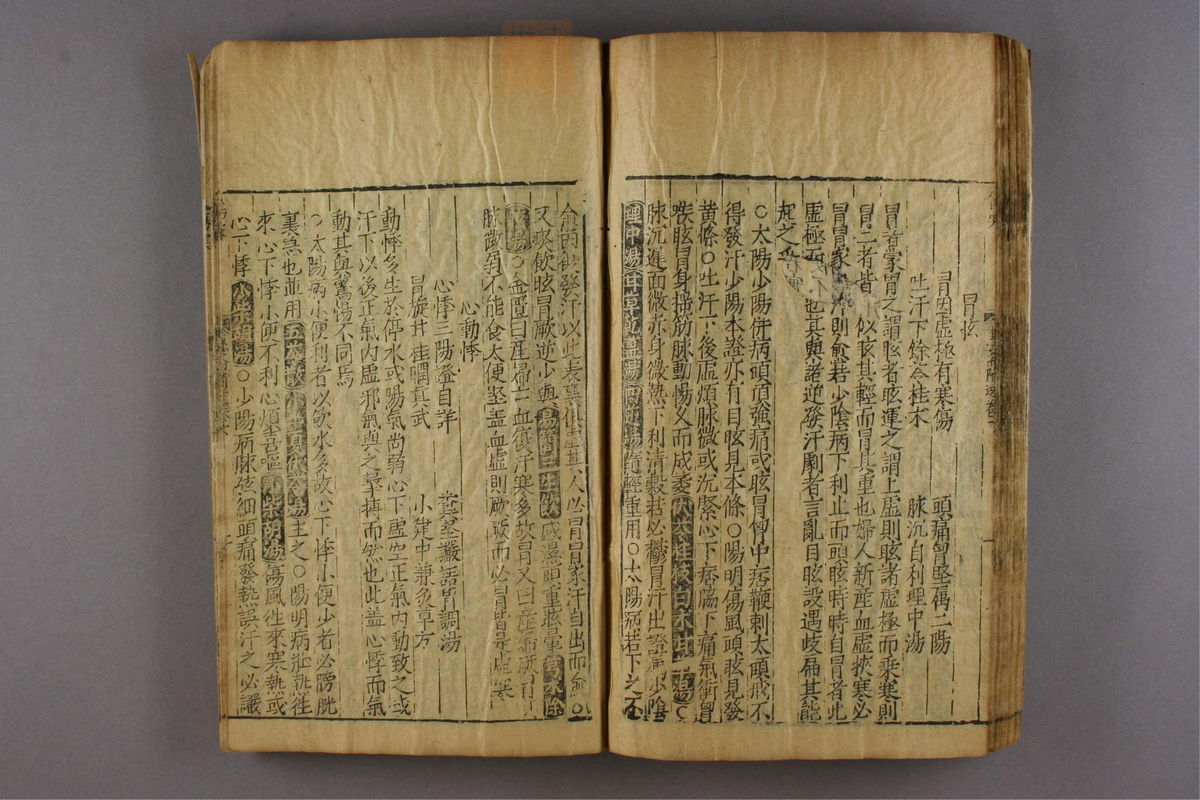 冒眩
冒因虛極有寒傷　頭痛胷堅属二陽
吐汗下餘今桂木　脉沉自利理中湯
冒者蒙冒之謂眩者眩運之謂上虛則眩諸虛極而乘寒則
冒二者皆似眩其輕而冒其重也婦人新産血虛挾寒必
冒冒家汗則愈若少陰病下利止而頭眩時時自冒者此
虛極而也其與諸逆發汗劇者言亂目眩設遇歧扁其能
起之
○太陽少陽併病頭頂強痛或眩冒胷中痞鞕刺太頭戒不
得發汗少陽本證亦有目眩見本條○陽明傷風頭眩見發
黃條○吐汗下後虛煩脉微或沉緊心下痞脇下痛氣衝胷
喉眩冒身揺筋脉動惕久而成痿茯苓桂枝白术甘草湯○
脉沉遲面微赤身微熱下利清穀若必欝冒汗出證屬少陰
理中湯甘草乾薑湯四逆湯隨輕重用○太陽病若下之不
愈而復發汗以此表裏俱虛其人必冒冒家汗自出而愈○
又咳飲眩冒厥逆少與湯管三生飲感濕頭重眩暈
湯○金匱曰産婦亡血復汗寒多故冒又曰産婦欝冒
脉微弱不能食大便堅盖血虛則厥厥而必冒皆是虛寒
心動悸
心悸三陽證自詳　大堅讝語胃調湯
冒旋廾桂瞤真武　小建中兼炙草方
動悸多生於停水或陽氣尚弱心下虛空正氣內動致之或
汗下以後正氣內虛邪氣與之擊搏而然也此盖心悸而氣
動其與驚惕不同焉
○太陽病小便利者以飲水多故心下悸小便少者必膀胱
裏急也並用五苓散小半夏茯苓湯主之○陽明病壯熱徃
來心下悸小便不利心煩喜嘔小柴胡湯傷風徃來寒熱或
心下悸湯○少陽病脉弦細頭痛發熱誤汗之必讝